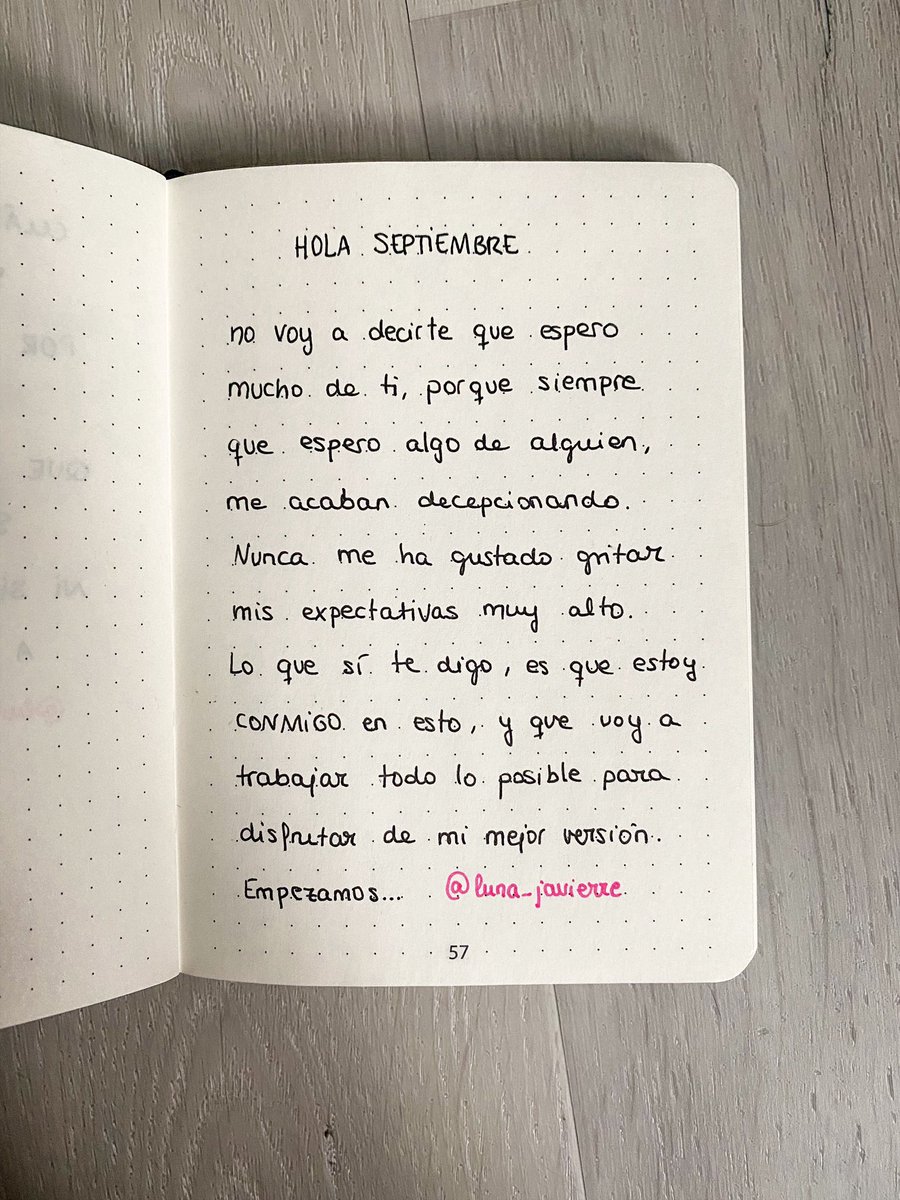 HOLA SEPTIEMBRE
no voy a decirte que espero
mucho de ti, porque siempre
que espero algo de alguien,
me acaban decepcionando.
Nunca me ha gustado gritar
mis expectativas muy alto.
Lo que sí te digo, es que estoy
CONMIGO en esto, y que voy a
trabajar todo lo posible para
disfrutar de mi mejor versión.
Empezamos... @luna_javierre
57